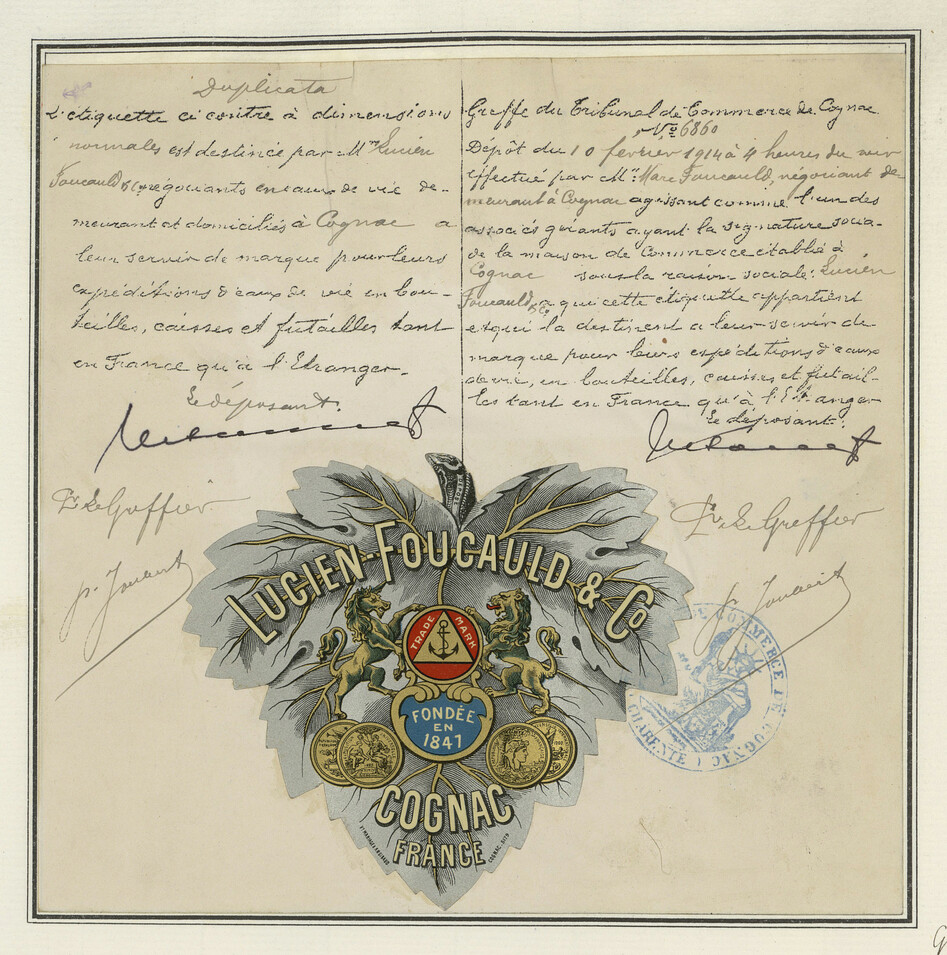 Duplicata
L'étiquette ci contre à dimensions
normales est destinée par Mrs Lucien
Foucauld & Co négociants en eaux de vie de-
meurant et domiciliés à Cognac a
leur servir de marque pour leurs
expéditions d'eaux de vie en bou-
teilles, caisses et futailles tant
en France qu'à l'Etranger.
Le déposant.
Pr Le Greffier
Greffe du Tribunal de Commerce de Cognac
No 6860
Dépôt du 10 février 1914 à 4 heures du soir
effectué par Mr: Marc Foucauld, négociant de-
meurant à Cognac agissant comme l'un des
associés gérants ayant la signature socia-
de la maison de Commerce établie à
Cognac sous la raison sociale: Lucien
Foucauld & Co, a qui cette étiquette appartient
et qui la destinent a leur servir de
marque pour leurs expéditions d'eaux
de vie, en bouteilles, caisses et futail-
les tant en France qu'à l'Etranger
Le déposant.
Pr Le Greffier
LUCIEN-FOUCAULD & CO
TRADE MARK
FONDÉE
EN
1847
COGNAC
FRANCE
DE COMMERCE DE COGNAC (CHARENTE)